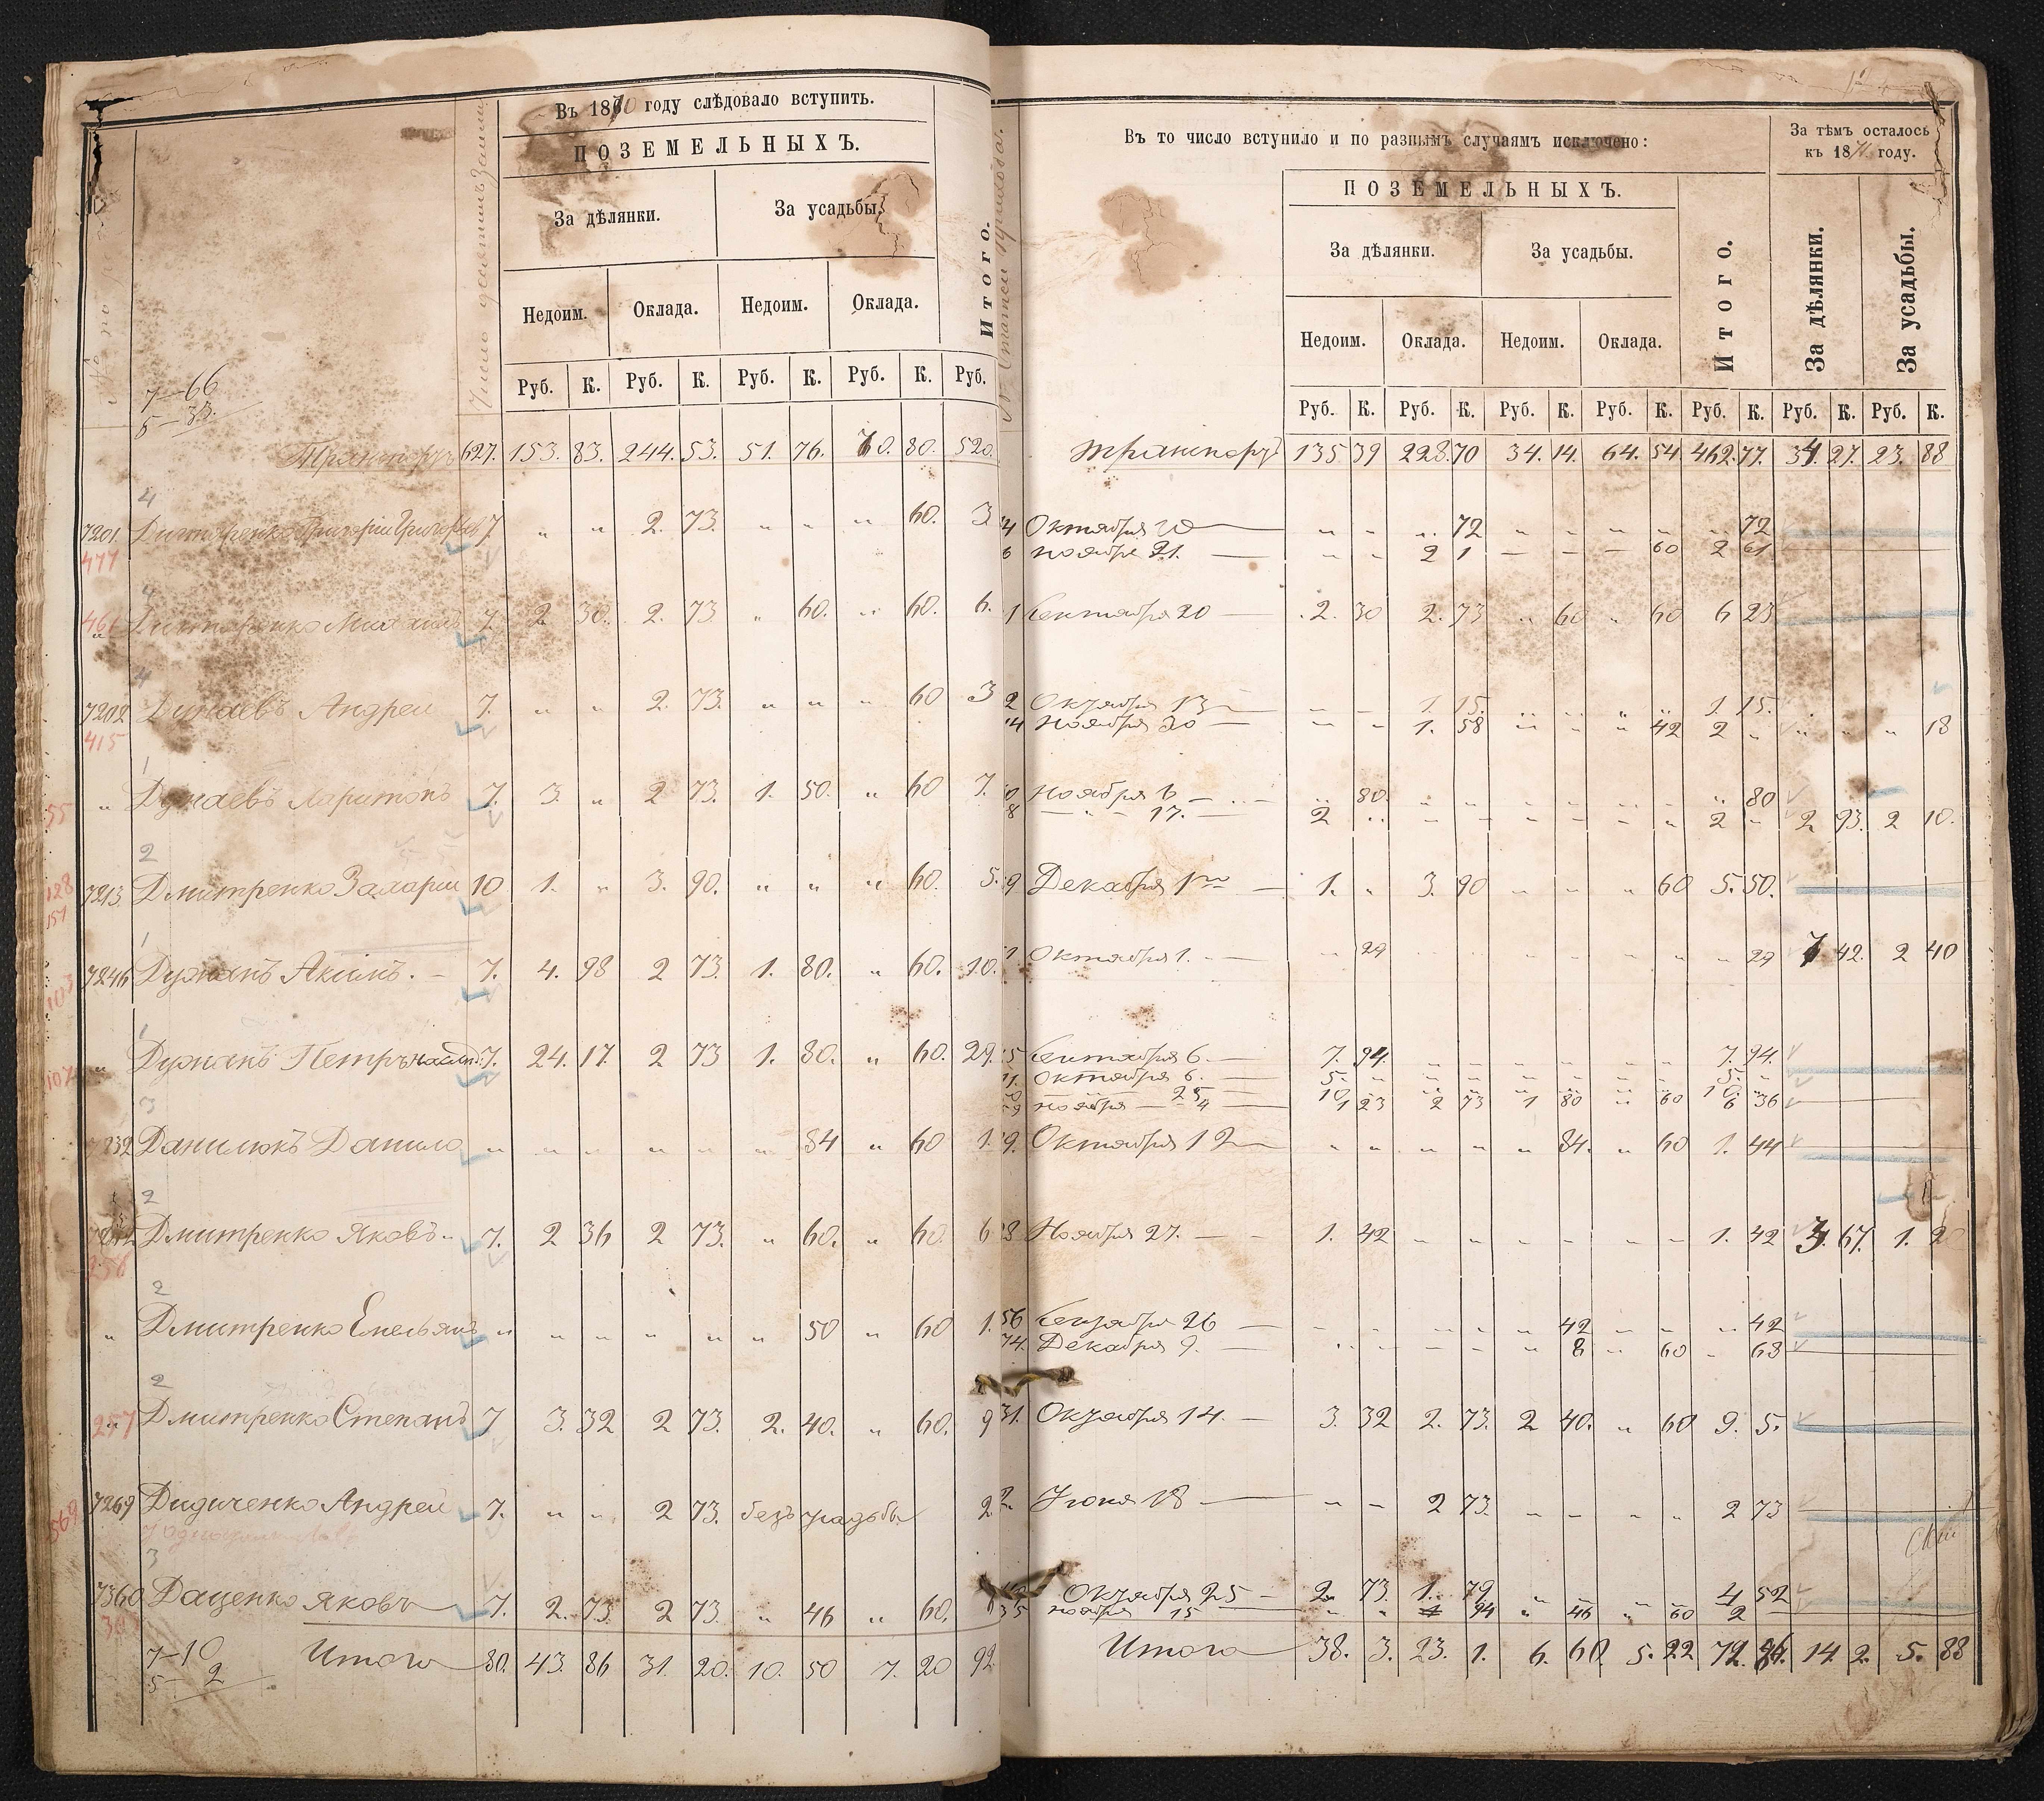 Въ 1870 году слѣдовало вступить.
ПОЗЕМЕЛЬНЫХЪ.
За дѣлянки. За усадьбы.
Недоим. Оклада. Недоим. Оклада. Итого.
Число десятинъ земли
Руб. К. Руб. К. Руб. К. Руб. К. Руб.
7—66
5—33
Транспортъ 627. 153. 83. 244. 53. 51. 76. 70. 80. 520.
4
7201 Григорій 7. „ „ 2. 73. „ „ „ 60. 3
477
4
461 „ 7. 2. 30. 2. 73 „ 60. „ 60. 6.
4
7202 Дунаевъ Андрей 7. „ „ 2. 73. „ „ „ 60 3
415
1
55 „ Дунаевъ Харитонъ 7. 3. „ 2 73. 1. 50. „ 60 7.
2
128 7213 Дмитренко Захарій 10 1. „ 3. 90. „ „ „ 60. 5.
151
1
103 7246 Дужакъ Акимъ. — 7. 4. 98 2 73. 1. 80. „ 60. 10.
1
107 „ Дужакъ Петръ 7. 24. 17. 2 73 1. 80. „ 60. 29.
3
7232 Данилюкъ Данило „ „ „ „ „ „ 84 „ 60 1.
2
Дмитренко Яковъ 7. 2 36 2 73. „ 60. „ 60. 6
258
2
„ Дмитренко Емельянъ „ „ „ „ „ „ 50 „ 60 1.
2
257 „ Дмитренко Степанъ 7 3. 32 2 73. 2. 40. „ 60. 9
569 7269 Дидиченко Андрей 7. „ „ 2 73. безъ усадьбы 2
3
7360 Даценко Яковъ 7. 2. 73. 2 73. „ 46 „ 60.
7—10
5— 2
Итого 80. 43. 86 31. 20. 10. 50 7. 20 92
Въ то число вступило и по разнымъ случаямъ исключено:
За тѣмъ осталось
къ 1871 году.
ПОЗЕМЕЛЬНЫХЪ.
За дѣлянки. За усадьбы. Итого. За дѣлянки. За усадьбы.
Недоим. Оклада. Недоим. Оклада.
Руб. К. Руб. К. Руб. К. Руб. К. Руб. К. Руб. К. Руб. К.
Транспортъ 135 39 228. 70 34. 14. 64. 54 462. 77. 34. 27. 23. 88
Октября 20 — „ „ „ 72 „ „ „ „ „ 72
Ноября 21. — „ „ 2 1 — — — 60 2 61
Сентября 20 — 2. 30 2. 73 „ 60 „ 60 6 23
Октября 13 — — 1. 15. „ „ „ „ 1. 15.
Ноября 20 — „ „ 1. 58 „ „ „ 42 2 „ „ „ „ 18
Ноября 6 — „ 80. „ „ „ „ „ „ „ 80
— „ — 17. — 2 „ „ „ „ „ „ „ 2 „ 2 93. 2 10.
Декабря 1го — 1. „ 3. 90 „ „ „ 60 5. 50.
Октября 1. — „ 29 „ „ „ „ „ „ „ 29 7 42. 2 40
Сентября 6. — 7. 94. „ „ „ „ „ „ 7. 94.
Октября 6. — 5. „ „ „ „ „ „ „ 5. „
— 25 — 10. „ „ „ „ „ „ „ 10. „
Ноября — 4 — 1 23 2 73 1 80 „ 60 6 36
Октября 12 „ „ „ „ „ 84. „ 60 1. 44
Ноября 27. — 1. 42 „ „ „ „ „ „ 1. 42 3. 67. 1. 20
Сентября 26 — „ „ „ „ „ 42 „ „ „ 42
Декабря 9. — „ „ „ „ „ 8 „ 60 „ 68
Октября 14. — 3. 32 2. 73. 2 40. „ 60 9. 5.
Июня 18 — „ „ 2 73. „ „ „ „ 2 73
Октября 25 — 2. 73. 1. 79 „ „ „ „ 4 52
ноября 15 — „ „ „ 94 „ 46 „ 60 2 —
Итого 38. 3. 23. 1. 6. 60. 5. 22 72. 86. 14. 2. 5. 88